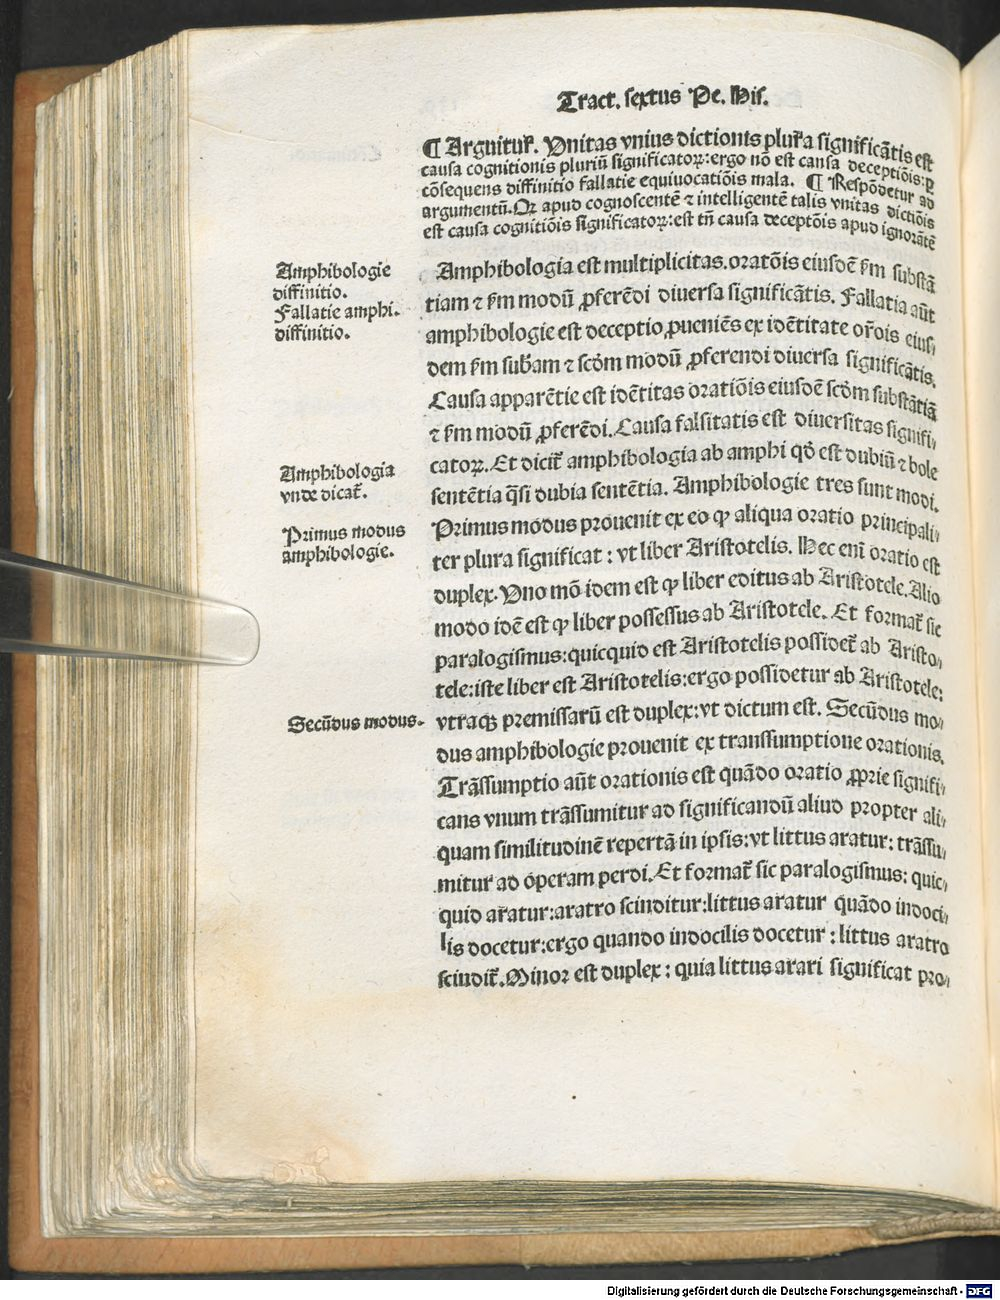 Tract. sextus Pe. His.
¶ Arguitur̃. Vnitas vnius dictionis plur̃a significãtis est
causa cognitionis pluriũ significatoꝝ: ergo nõ est causa deceptiõis: ꝑ
cõsequens diffinitio fallatie equiuocatiõis mala. ¶ Respõdetur ad
argumentũ. Qꝛ apud cognoscentẽ ⁊ intelligentẽ talis vnitas dictiõis
est causa cognitiõis significatoꝝ: est tñ causa deceptõis apud ignorãtẽ
Amphibologie
diffinitio.
Fallatie amphi.
diffinitio.
Amphibologia est multiplicitas. oratõis eiusdẽ ẜm substã
tiam ⁊ ẜm modũ ꝓferẽdi diuersa significãtis. Fallatia aũt
amphibologie est deceptio ꝓueniẽs ex idẽtitate or̃ois eius⸗
dem ẜm sub̃am ⁊ scd̃m modũ ꝓferendi diuersa significãtis.
Causa apparẽtie est idẽtitas oratiõis eiusdẽ scd̃m substãtiã
⁊ ẜm modũ ꝓferẽdi. Causa falsitatis est diuersitas signifi⸗
catoꝝ. Et dicit̃ amphibologia ab amphi qd̃ est dubiũ ⁊ bole
sentẽtia q̃si dubia sentẽtia. Amphibologie tres sunt modi.
Amphibologia
vnde dicat̃.
Primus modus
amphibologie.
Primus modus prouenit ex eo ꝙ aliqua oratio principali⸗
ter plura significat: vt liber Aristotelis. Hec eni᷑ oratio est
duplex. Vno mõ idem est ꝙ liber editus ab Aristotele. Alio
modo idẽ est ꝙ liber possessus ab Aristotele. Et format̃ sic
paralogismus: quicquid est Aristotelis possidet̃ ab Aristo⸗
tele: iste liber est Aristotelis: ergo possidetur ab Aristotele:
vtraqꝫ premissarũ est duplex: vt dictum est. Secũdus mo⸗
Secũdus modus.
dus amphibologie prouenit ex transsumptione orationis.
Trãssumptio aũt orationis est quãdo oratio ꝓprie signifi⸗
cans vnum trãssumitur ad significandũ aliud propter ali⸗
quam similitudinẽ repertã in ipsis: vt littus aratur: trãssu⸗
mitur ad operam perdi. Et format̃ sic paralogismus: quic⸗
quid aratur: aratro scinditur: littus aratur quãdo indoci⸗
lis docetur: ergo quando indocilis docetur: littus aratro
scindit̃. Minor est duplex: quia littus arari significat pro⸗
Digitalisierung gefördert durch die Deutsche Forschungsgemeinschaft - DFG